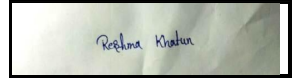 Reshma Khatun